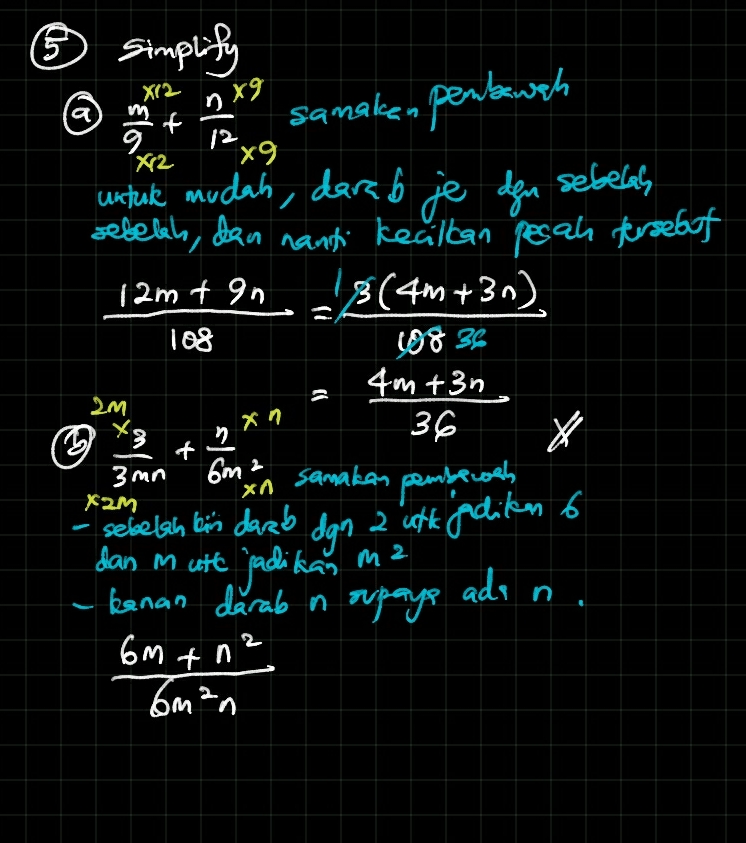 5 Simplify
x12 x9
a m/9 + n/12 samakan pembawah
x12 x9
untuk mudah, darab je dgn sebelah
sebelah, dan nanti kecilkan pecah tersebut
(12m + 9n)/108 = 1 3(4m + 3n)/108 36
= (4m + 3n)/36
2m x x n
b 3/3mn + n/6m² samakan pembawah
x2m xn
- sebelah kiri darab dgn 2 utk jadikan 6
dan m utk jadikan m²
- kanan darab n supaya ada n.
(6m + n²)/6m²n